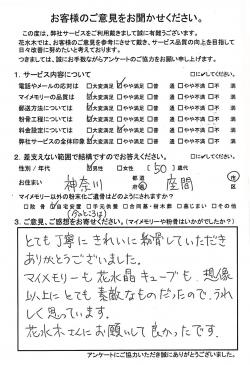 お客様のご意見をお聞かせください。
この度は、弊社サービスをご利用頂きまして誠にありがとうございます。
花水木では、お客様のご意見を参考にさせて戴き、サービス品質の向上を目指して
日々改善に努めたいと考えております。
つきましては、誠にお手数ながらアンケートのご協力をお願い申し上げます。
1. サービス内容について □に✓してください。
電話やメールの応対は ☑大変満足 □やや満足 □普 通 □やや不満 □不 満
マイメモリーの品質は ☑大変満足 □やや満足 □普 通 □やや不満 □不 満
郵送方法について □やや満足 □普 通 □やや不満 □不 満
粉骨工程について □やや満足 □普 通 □やや不満 □不 満
料金設定について □普 通 □やや不満 □不 満
弊社サービスの全体印象 □やや満足 □普 通 □やや不満 □不 満
2. 差支えない範囲で結構ですのでお答えください。 □に✓してください。
性別/年代 ☑男性 □女性 ( 50 ) 歳代
お住まい 神奈川 都 道 府 県 座間 市 区
マイメモリー以外の粉末化ご遺骨はどのようにされますか?
□散骨 ☑自宅安置 □手元供養 □合同墓・樹木葬 □墓じまい □その他
(今のところは)
3. ご意見、ご感想をお寄せください。(マイメモリーや粉骨はいかがでしたか?)
とても丁寧にきれいに粉骨していただき
ありがとうございました。
マイメモリーも花水晶キューブも、想像
以上にとても素敵なものだったので、うれ
しく思っています。
花水木さんにお願いして良かったです。
アンケートにご協力いただき誠にありがとうございました。